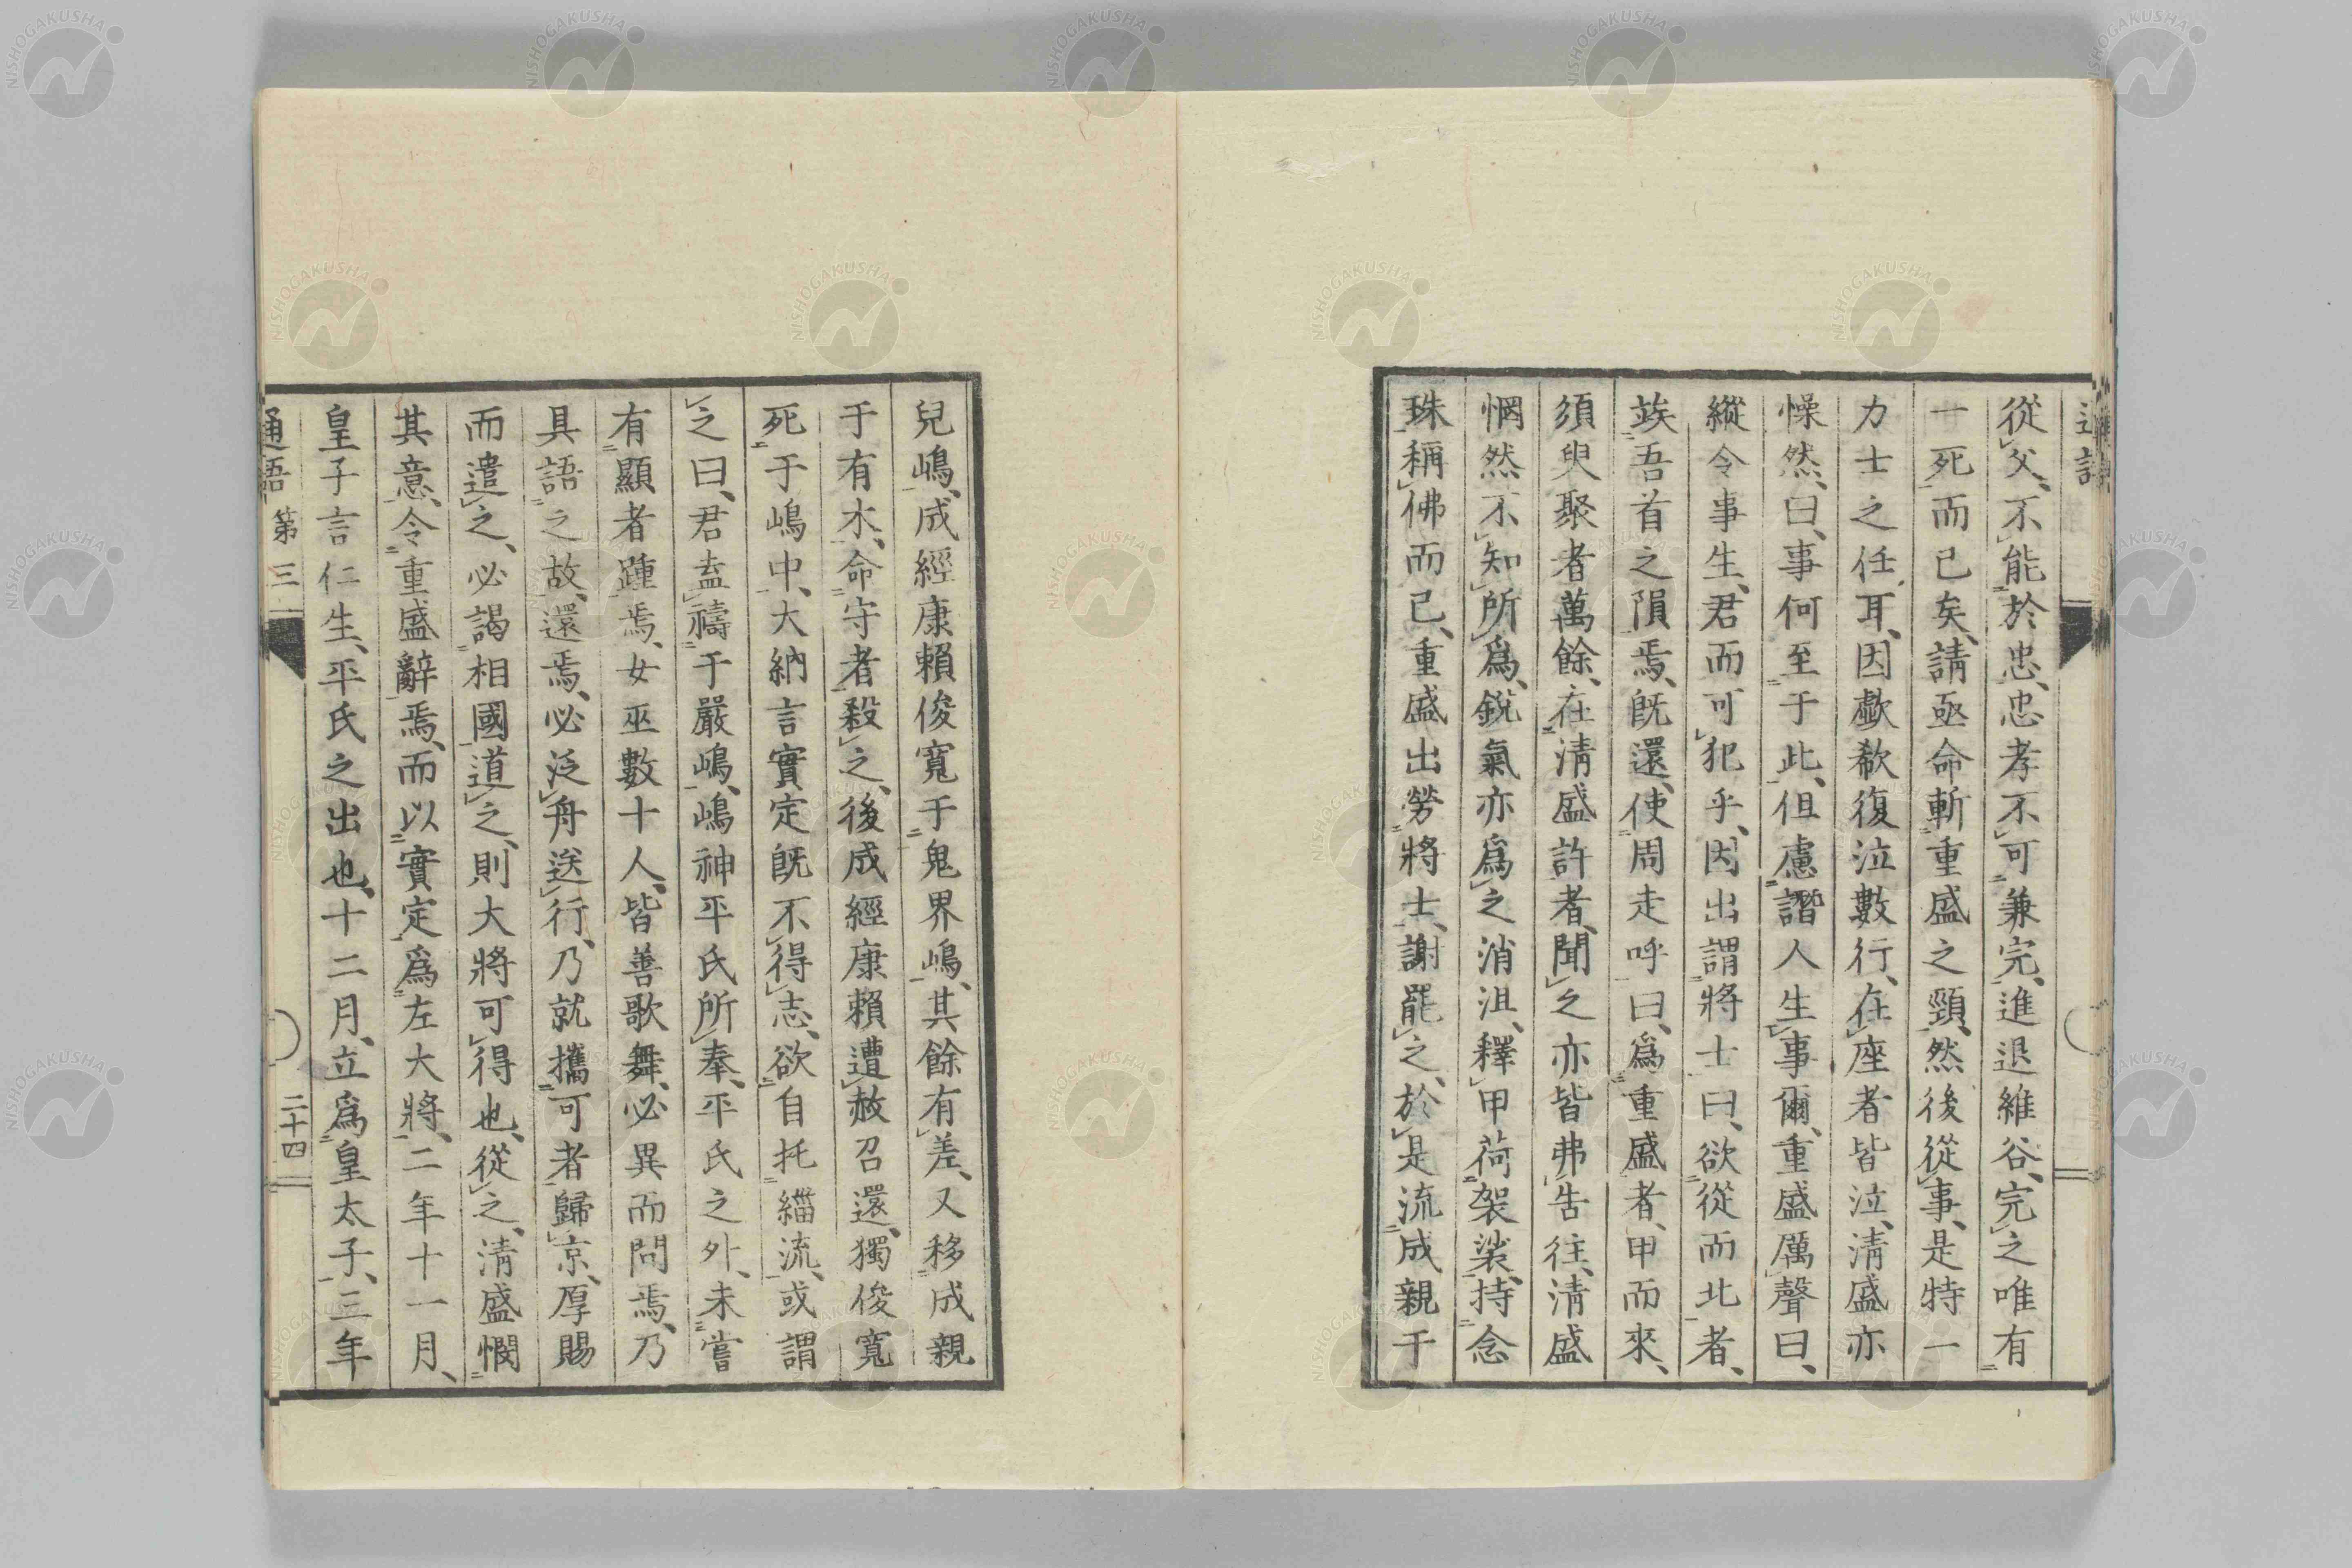 從父、不能於忠、忠孝不可兼完、進退維谷、完之唯有
一死而已矣、請亟命斬重盛之頸、然後從事、是特一
力士之任耳、因歔欷復泣數行、在座者皆泣、清盛亦
懆然、曰、事何至于此、但慮譖人生事爾、重盛厲聲曰、
縱令事生、君而可犯乎、因出謂將士曰、欲從而北者、
竢吾首之隕焉、既還、使周走呼曰、爲重盛者、甲而來、
須臾聚者萬餘、在清盛許者、聞之亦皆弗告往、清盛
惘然不知所爲、銳氣亦爲之消沮、釋甲荷袈裟、持念
珠稱佛而已、重盛出勞將士、謝罷之、於是流成親于
兒嶋、成經康賴俊寬于鬼界嶋、其餘有差、又移成親
于有木、命守者殺之、後成經康賴遭赦召還、獨俊寬
死于嶋中、大納言實定既不得志、欲自托緇流、或謂
之曰、君盍禱于嚴嶋、嶋神平氏所奉、平氏之外、未嘗
有顯者踵焉、女巫數十人、皆善歌舞、必異而問焉、乃
具語之故、還焉、必泛舟送行、乃就攜可者歸京、厚賜
而遣之、必謁相國道之、則大將可得也、從之、清盛憫
其意、令重盛辭焉、而以實定爲左大將、二年十一月、
皇子言仁生、平氏之出也、十二月、立爲皇太子、三年
通語 第三 二十四
NISHOGAKUSHA